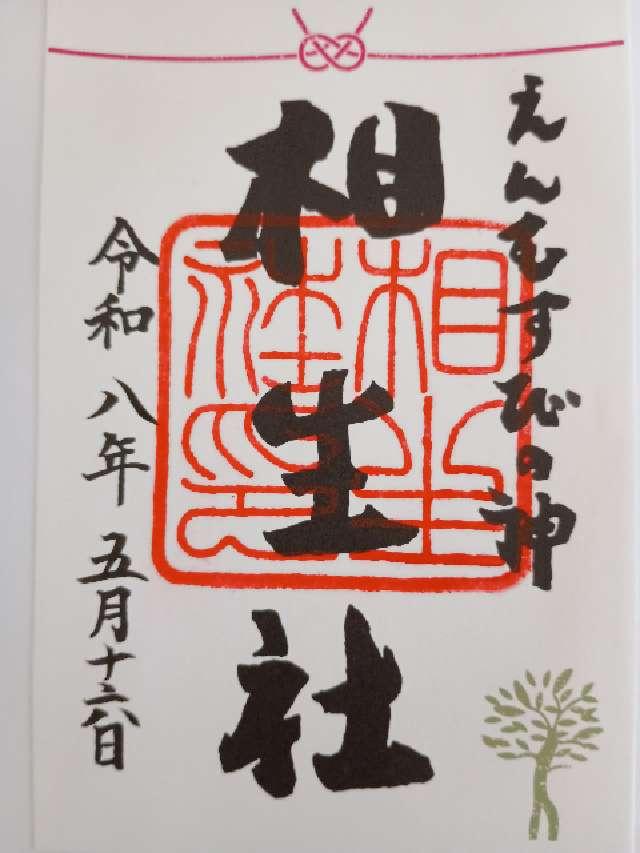 えんむすびの神
相生社
相生社印
令和八年五月十六日